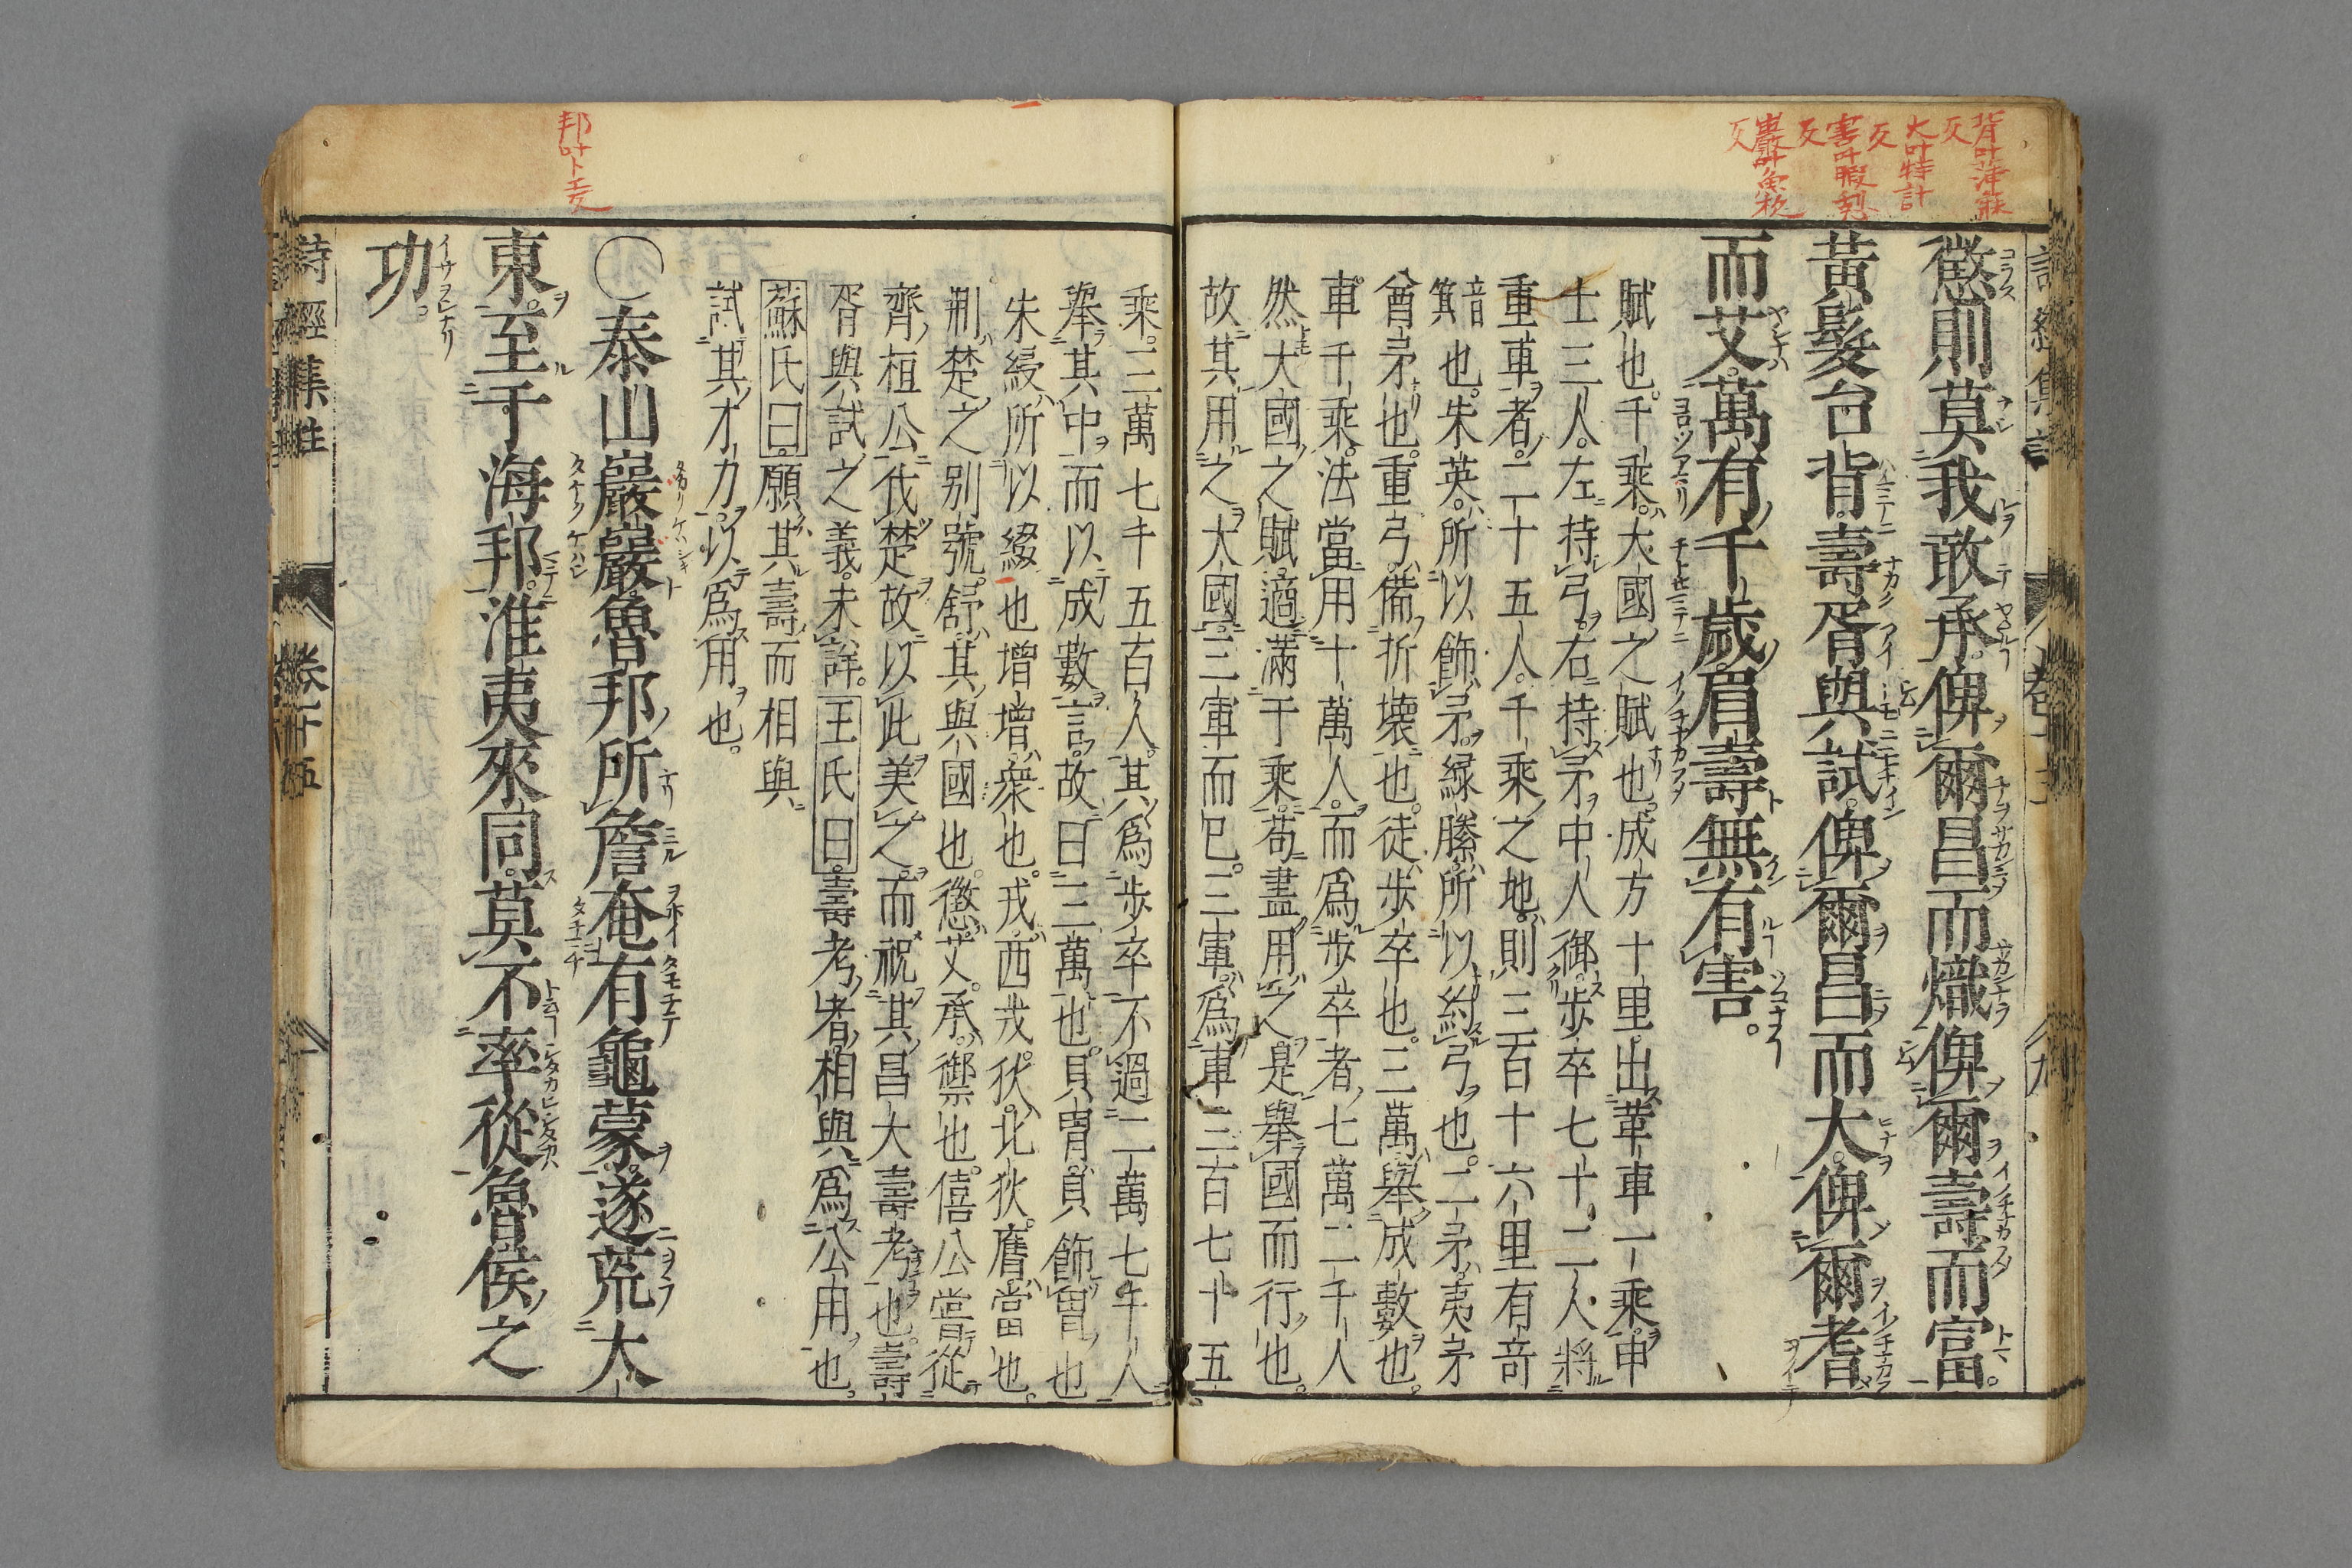 背叶蒲寐
反
大叶特計
反
害叶暇憩
反
巖叶魚枚
反
懲則莫我敢承俾爾昌而熾俾爾壽而富。
黃髮台背壽胥與試俾爾昌而大俾爾耆
而艾萬有千歲眉壽無有害。
賦也。千乘。大國之賦也。成方十里。出革車一乘。甲
士三人。左持弓。右持矛。中人御。步卒七十二人。將
重車者。二十五人。千乘之地。則三百十六里有奇
音箕也。朱英。所以飾矛。綠縢。所以約弓也。二矛。夷矛
酋矛也。重弓。備折壞也。徒。步卒也。三萬。舉成數也。
車千乘。法當用十萬人。而爲步卒者。七萬二千人
然大國之賦。適滿千乘。苟盡用之。是舉國而行也。
故其用之。大國三軍而已。三軍。爲車三百七十五
乘。三萬七千五百人。其爲步卒。不過二萬七千人
舉其中。而以成數言。故曰三萬也。貝冑。貝飾冑也
朱綅。所以綴也增增。衆也。戎。西戎。狄。北狄。膺。當也。
荆。楚之别號。舒。其與國也。懲。艾。承。禦也。僖公嘗從
齊桓公伐楚。故以此美之。而祝其昌大壽考也。壽
胥與試之義。未詳。王氏曰。壽考者。相與爲公用也。
蘇氏曰。願其壽而相與
試其才力。以爲用也。
邦叶卜工反
○泰山巖巖魯邦所詹奄有龜蒙遂荒大
東。至于海邦。淮夷來同。莫不率從魯侯之
功。
詩經集註 卷十五